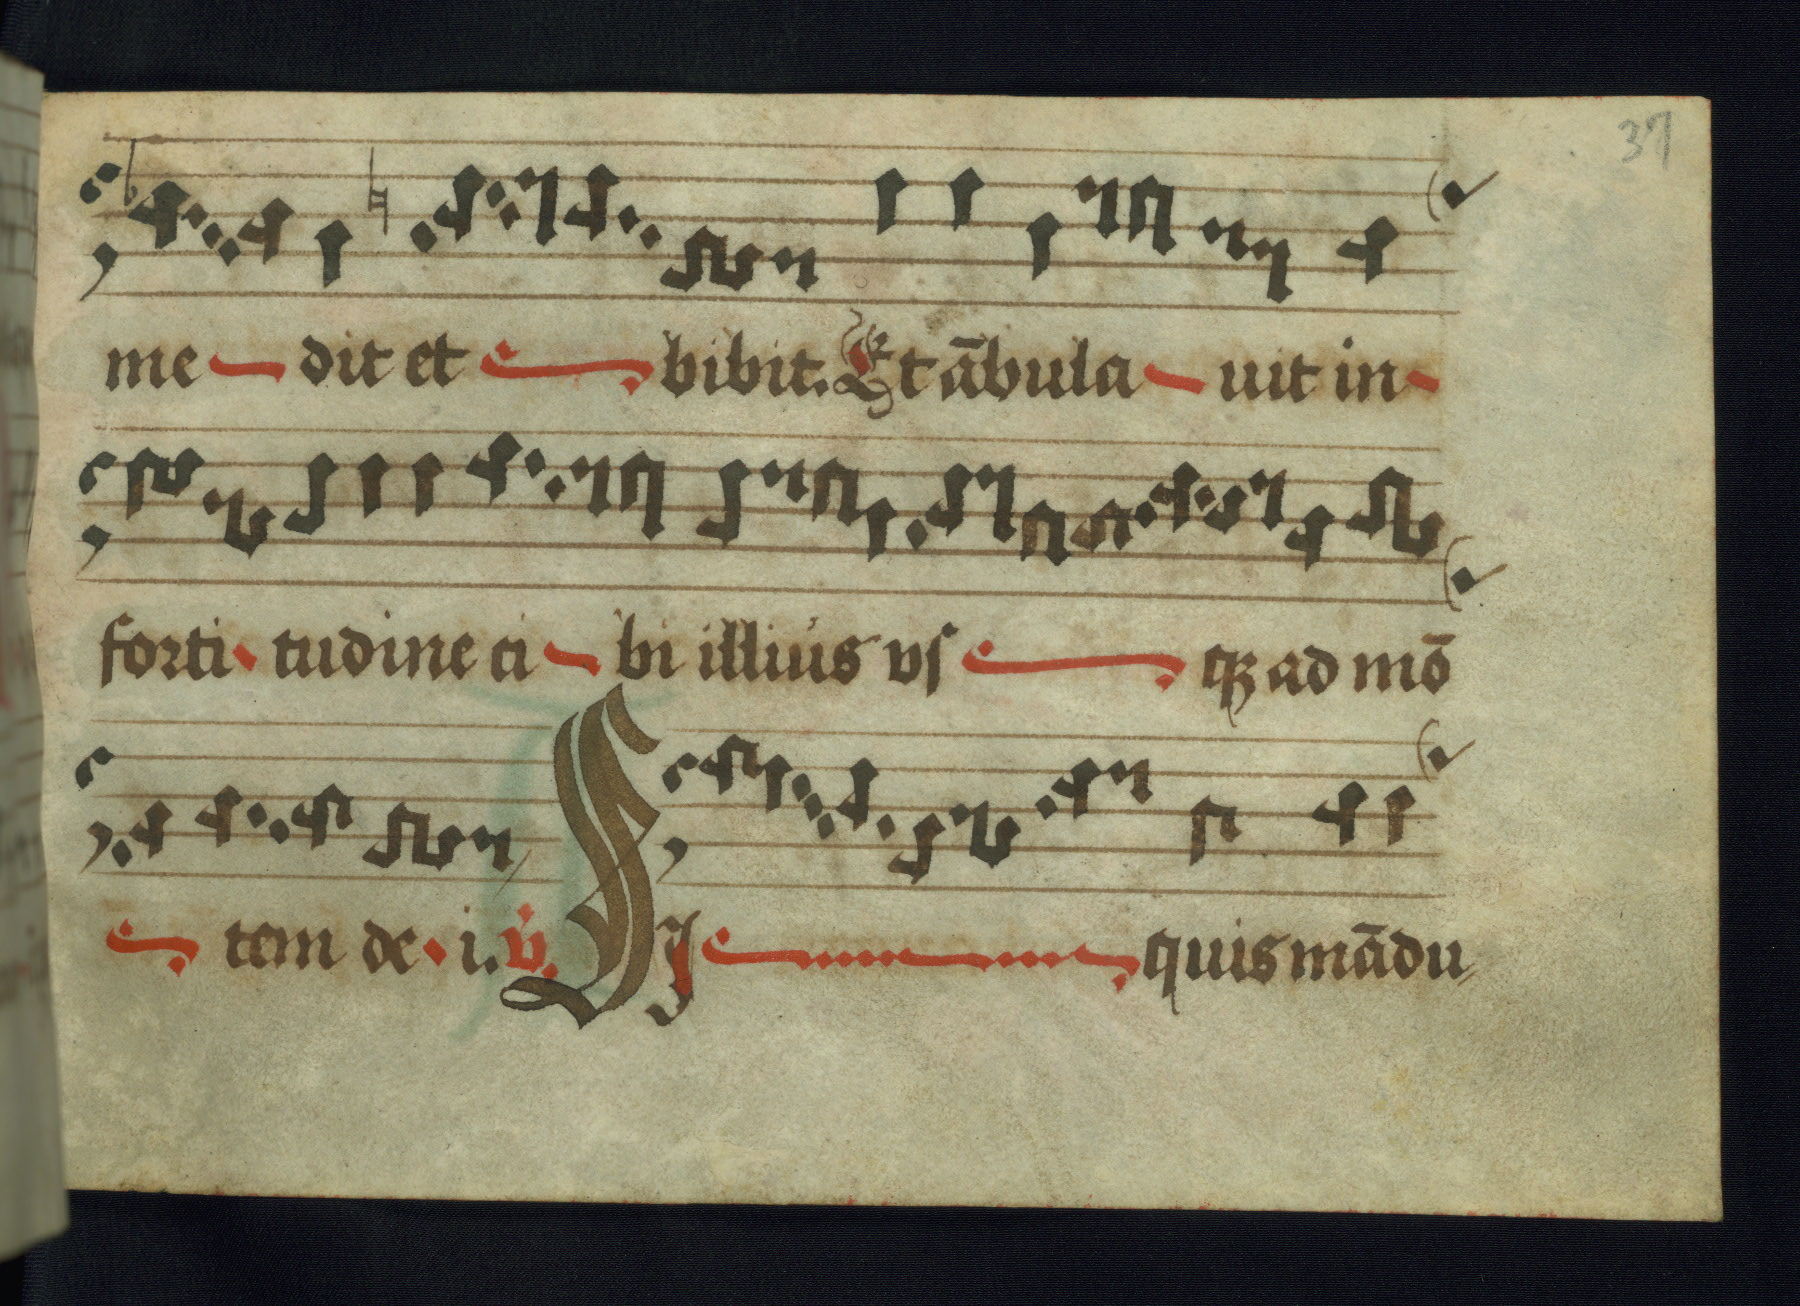 37
me dit et bibit. Et ābula uit in
forti tudine ci bi illius vſ qꝫ ad mō
tem de i. v̇. SI quis mādu